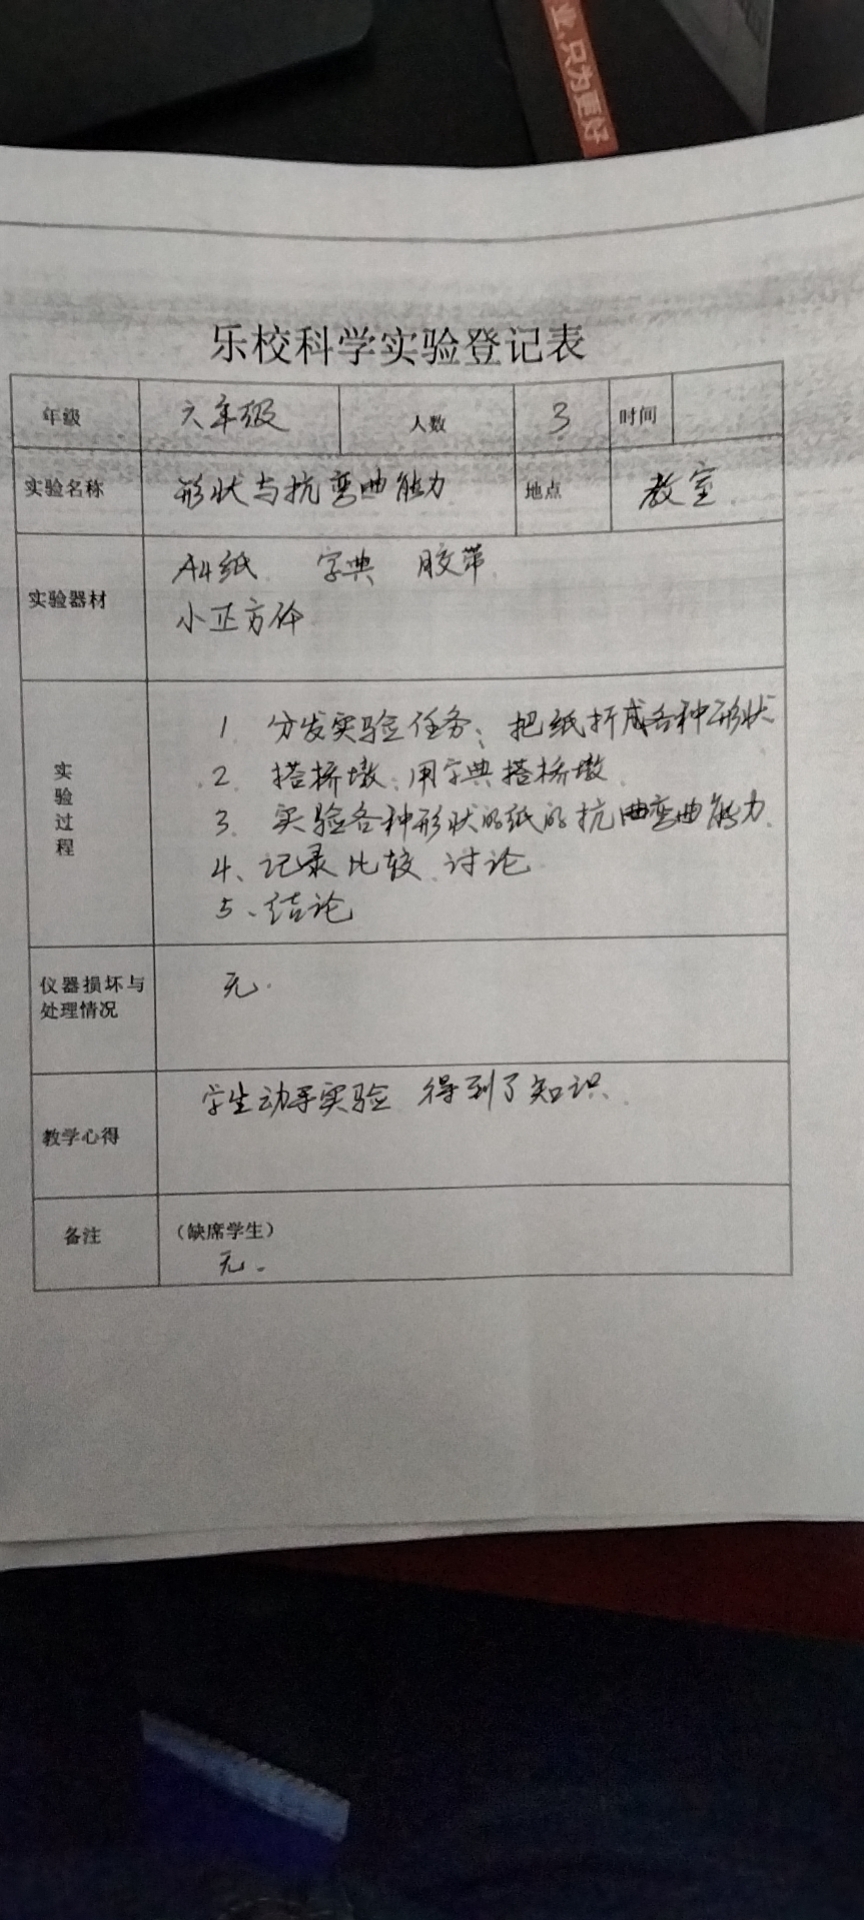 业,只为更好
乐校科学实验登记表
年级 六年级 人数 3 时间
实验名称 形状与抗弯曲能力 地点 教室.
实验器材 A4纸. 字典 胶带.
小正方体
实验过程
1. 分发实验任务; 把纸折成各种形状
2. 搭桥墩: 用字典搭桥墩.
3. 实验各种形状的纸的抗曲弯曲能力.
4、记录比较. 讨论.
5、结论
仪器损坏与处理情况 无.
教学心得 学生动手实验 得到了知识.
备注 (缺席学生)
无.